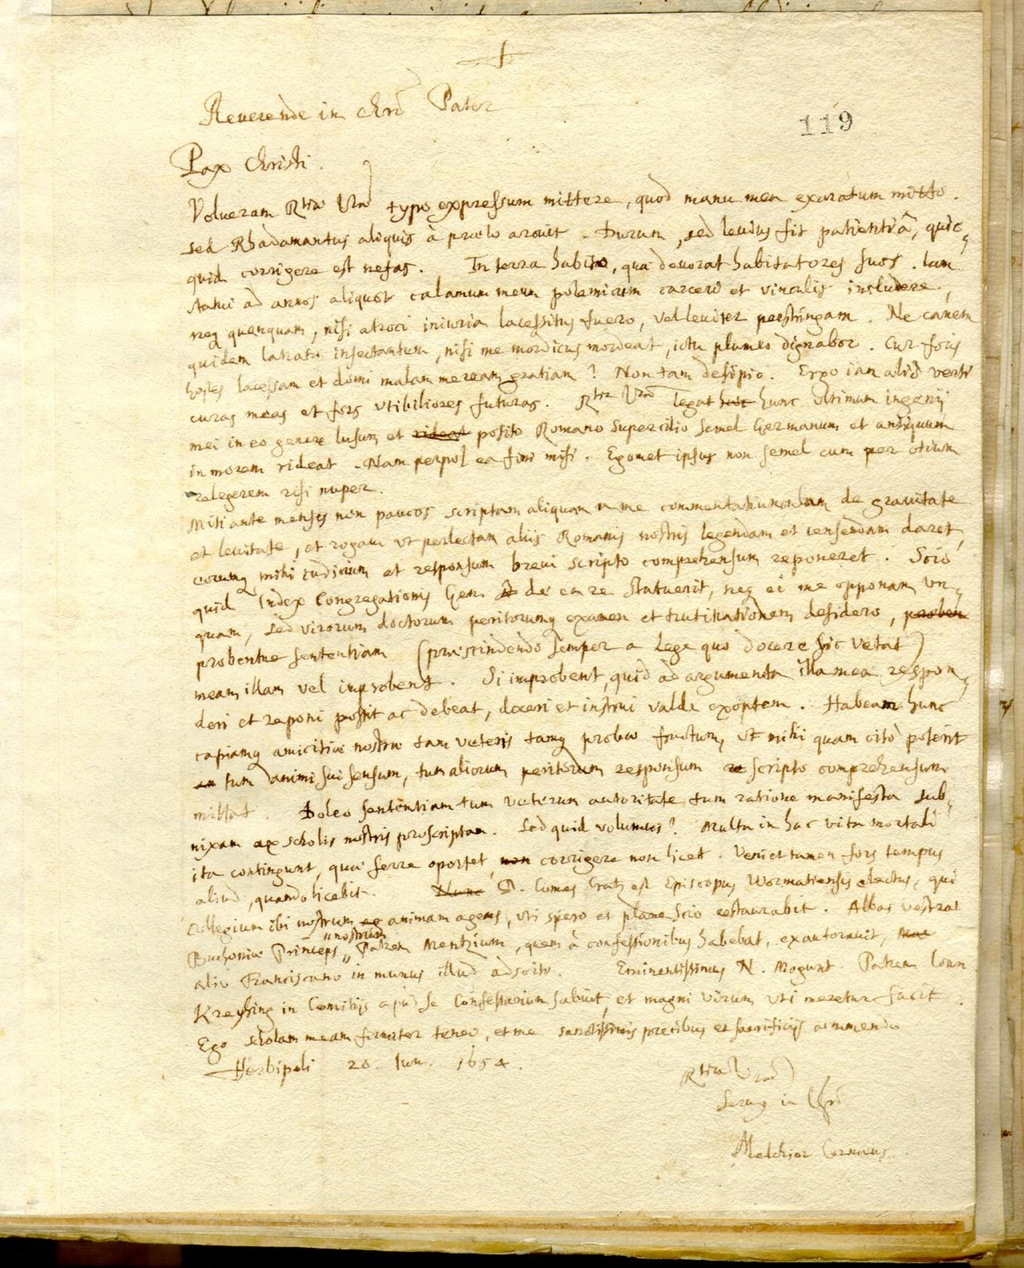 Reverende in Chrō Pater
119
Pax Christi.
Volueram Rtiæ Vræ typo expressum mittere, quod manu mea exaratum mitto.
sed Rhadamantus aliquis à prælo arcuit. Durum, sed leuius fit patientiâ, quic-
quid corrigere est nefas. In terra habito, quæ deuorat habitatores suos. Iam
statui ad annos aliquot calamum meum polemicum carceri et vinculis includere,
neq quenquam, nisi atroci iniuria lacessitus fuero, vel leuiter perstringam. Ne canem
quidem latratu insectantem, nisi me mordicus mordeat, ictu plumeo dignabor. Cur foris
hostes lacessam et domi malam meream gratiam? Non tam desipio. Ergo iam aliò verti
curas meas et fors vtibiliores futuras. Rtia Vra legat hunc vltimum ingenij
mei in eo genere lusum et rideat posito Romano supercilio semel Germanum et antiquum
in morem rideat. Nam perpol ea fini misi. Egomet ipsus non semel cum per otium
relegerem risi nuper.
Misi ante menses non paucos scriptam aliquam a me commentatiunculam de grauitate
et leuitate, et rogaui vt perlectam aliis Romanis nostris legendam et censendam daret,
eorumq mihi iudicium et responsum breui scripto comprehensum reponeret. Scio
quid Index Congregationis Gen. de ea re statuerit, neq ei me opponam vn-
quam, sed virorum doctorum peritorumq examen et trutinationem desidero,
probentne sententiam (præscindendo semper a Lege quæ docere sic vetat)
meam illam vel improbent. Si improbent, quid ad argumenta illa mea respon-
deri et reponi possit ac debeat, doceri et instrui valde exoptem. Habeam hunc
capiamq amicitiæ nostræ tam veteris tamq probæ fructum, vt mihi quam citò poterit
tum animi sui sensum, tum aliorum peritorum responsum scripto comprehensum
mittat. Doleo sententiam tum veterum autoritate, tum ratione manifesta sub-
nixam ex scholis nostris proscriptam. Sed quid volumus? Multa in hac vita mortali
ita contingunt, quæ ferre oportet, corrigere non licet. Veniet tamen fors tempus
aliud, quando licebit. D. Comes Cratz est Episcopus Wormatiensis electus, qui
collegium ibi nostrum animam agens, vti spero et plane scio restaurabit. Abbas vestras
Buchoniæ Princeps nostrum Patrem Mentzium, quem à confessionibus habebat, exautorauit,
alio Franciscano in munus illud adscito. Eminentissimus N. Mogunt. Patrem Ioan
Kreyhing in Comitijs apud se Confessarium habuit, et magni virum vti meretur facit.
Ego scholam meam fruniter teneo, et me sanctissimis precibus et sacrificijs commendo
Herbipoli 20. Iun. 1654.
Rtiæ Vræ
Seruus in Chrō
Melchior Cornæus